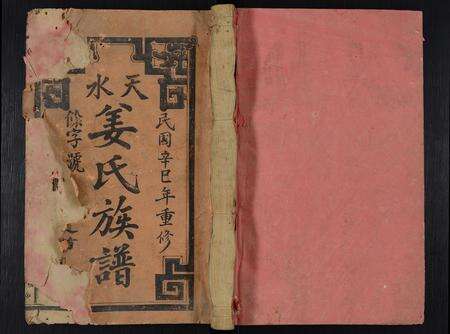 民国辛巳年重修
天水
姜氏族譜
字號